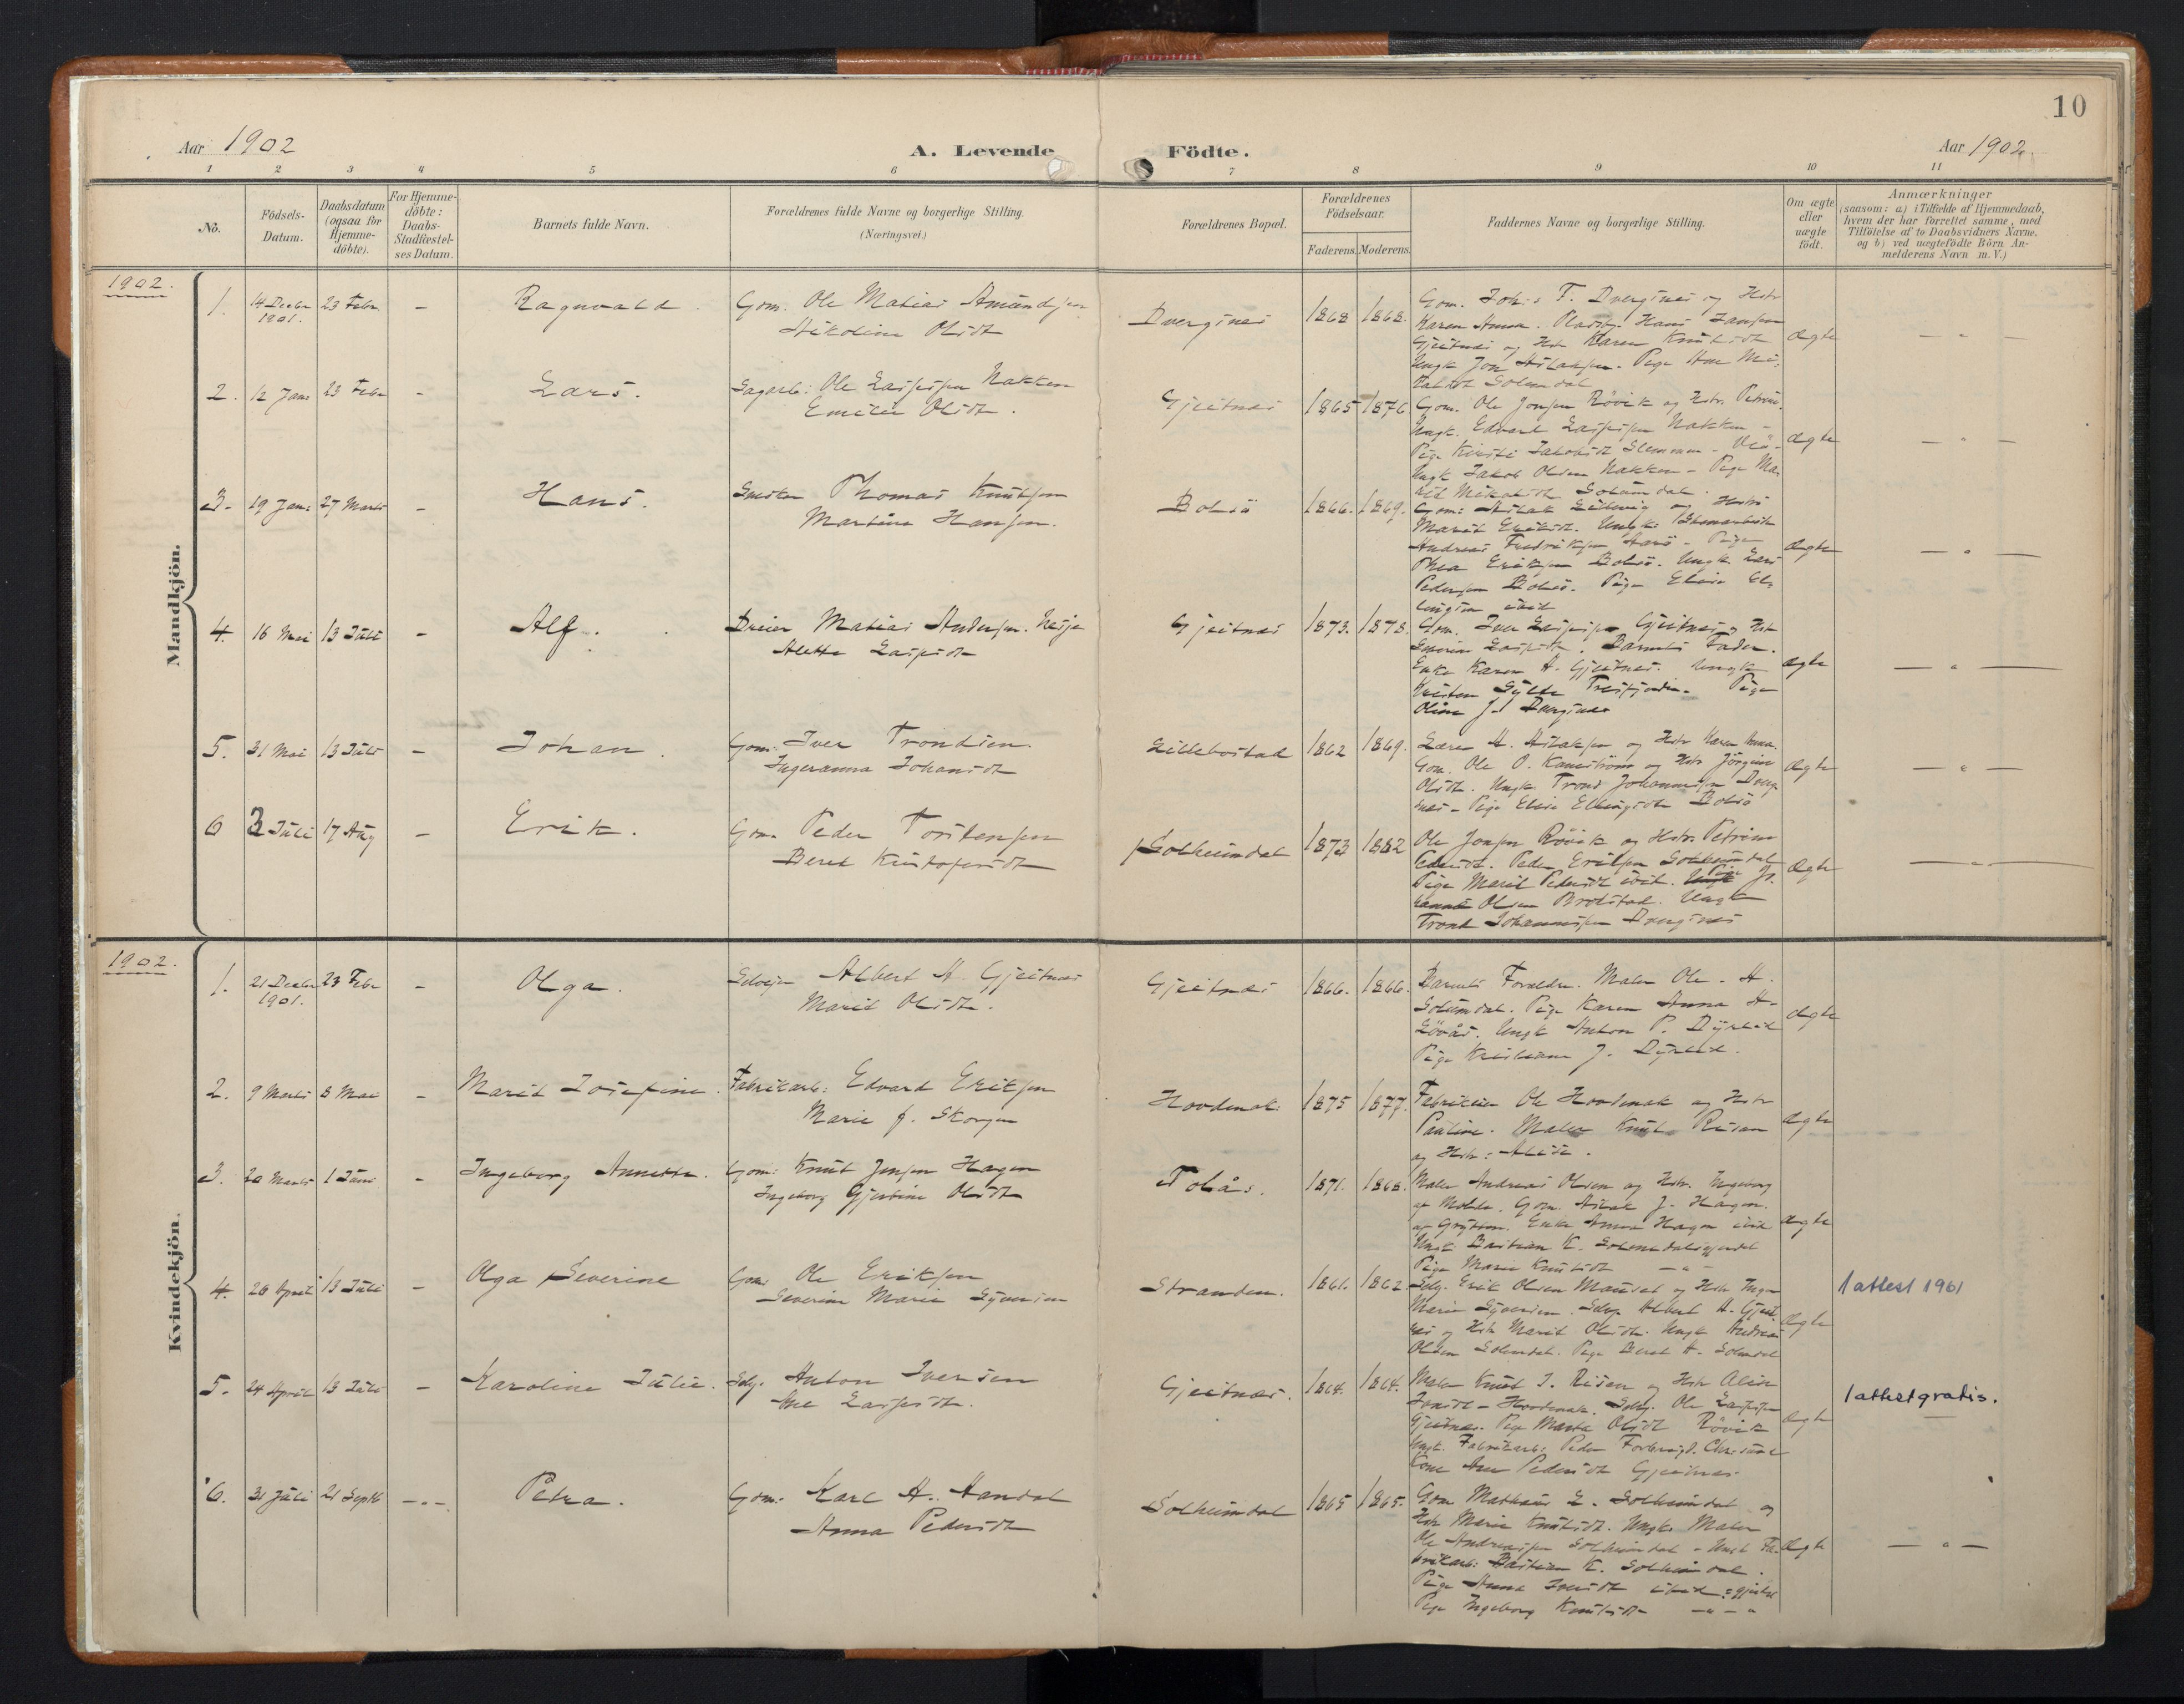 10
Aar 1902
A. Levende Födte.
Aar 1902.
1 2 3 4 5 6 7 8 9 10 11
No.
Födsels-
Datum.
Daabsdatum
(ogsaa for
Hjemme-
döbte).
For Hjemme-
döbte:
Daabs-
Stadfæstel-
ses Datum.
Barnets fulde Navn.
Forældrenes fulde Navne og borgerlige Stilling.
(Næringsvei.)
Forældrenes Bopæl.
Forældrenes
Födselsaar.
Faderens. Moderens.
Faddernes Navne og borgerlige Stilling.
Om ægte
eller
uægte
födt.
Anmærkninger
(saasom: a) i Tilfælde af Hjemmedaab,
hvem der har forrettet samme, med
Tilföielse af to Daabsvidners Navne.
og b) ved uægtefödte Börn An-
melderens Navn m.V.)
Mandkjön.
1902.
1. 14 Decbr 1901. 23 Febr. - Ragnvald. Gom. Ole Matias Amundsen
Nikoline Olsdt
Dvergsnes 1868 1868.
Gom. Johs T. Dvergsnes og Hstr
Karen Anna. Pladsb. Hans Jansen
Gjeitnes og Hstr Karen Knutsdt
Ungk Jon Aslaksen. Pige Ane Mi-
kalsdt Solemdal
Ægte — " —
2. 12 Jan: 23 Febr - Lars. Sagarb: Ole Lassesen Nakken
Emilie Olsdt.
Gjeitnes 1865 1876.
Gom. Ole Jonsen Rövik og Hstr. Petrine.
Ungk. Edvard Lassesen Nakken -
Pige Kirsti Jakobsdt Slemmen - Veö-
Ungk Jakob Olsen Nakken - Pige Ma-
rit Mikalsdt Solemdal.
Ægte — " —
3. 19 Jan: 27 Marts - Hans. Smeden Thomas Knutsen
Martina Hansen.
Bolsö 1866. 1869.
Gom: Aslak Lillevig og Hstr
Marit Eriksdt. Ungk:
Andreas Fredriksen Aarö - Pige
Thea Eriksen Bolsö. Ungk Lars
Pedersen Bolsö. Pige Elise El-
lingsen ibid
Ægte — " —
4. 16 Mai 13 Juli - Alf. Dreier Matias Andersen Nesje
Alette Lassesdt
Gjeitnes 1873. 1878.
Gom. Iver Lassesen Gjeitnes og Hstr
Severine Lassesdt. Barnets Fader.
Enke Karen A. Gjeitnes. Ungk
Kristen Sylte Tresfjorden. Pige
Oline J. Dvergsnes
Ægte — " —
5. 31 Mai 13 Juli - Johan. Gom: Iver Trondsen.
Ingeranna Johansdt
Lillebostad 1862 1869.
Lærer A. Aslaksen og Hstr Karen Anna.
Gom. Ole O. Kanestrøm og Hstr Jörgine
Olsdt. Ungk. Trond Johannesen Dverg-
snes - Pige Elise Ellingsdt Bolsö
Ægte — " —
6 3 Juli 17 Aug - Erik. Gom. Peder Torstensen
Beret Kristofersdt
Solheimdal 1873 1882
Ole Jonsen Rövik og Hstr. Petrine
Edvardt. Peder Eriksen Solheimdal
Pige Marit Pedersdt ibid. Ungk Pige Jo-
hanne Olsen Brokstad. Ungk
Trond Johannesen Dvergsnes
Ægte — " —
Kvindekjön.
1902.
1. 21 Decbr 1901. 23 Febr - Olga. Selvejer Albert A. Gjeitnes
Marit Olsdt.
Gjeitnes 1866. 1866.
Barnets Forældre. Maler Ole. A.
Solemdal. Pige Karen Anna A.
Lövås. Ungk Anton P. Dyrlid
Pige Kristiane J. Dyrlid.
Ægte
2. 9 Marts 8 Mai - Marit Josefine. Fabrikarb: Edvard Eriksen
Marie J. Skorgen
Hovdenak 1875 1877.
Fabrikeier Ole Hovdenak og Hstr
Pauline. Maler Knut Risan
og Hstr: Alise.
Ægte
3. 20 Marts 1 Juni - Ingeborg Annette. Gom: Knut Jensen Hagen
Ingeborg Gjertine Olsdt
Tobås. 1871. 1868.
Maler Andreas Olsen og Hstr. Ingeborg
af Molde. Gom. Aslak J. Hagen.
af Grytten. Enke Anna Hagen ibid
Ungk Bastian K. Solemdalsgjerdet
Pige Marie Knutsdt — " —
Ægte
4. 20 April 13 Juli - Olga Severine Gom: Ole Eriksen
Severine Marie Syversen
Stranden. 1861. 1862.
Selv. Erik Olsen Mauset og Hstr Inger
Marie Syversen. Selv. Albert A. Gjeit-
nes og Hstr Marit Olsdt. Ungk Andreas
Olsen Solemdal. Pige Beret A. Solemdal
Ægte 1 attest 1961
5. 24 April 13 Juli - Karoline Julie. Selv. Anton Iversen
Ane Lassesdt.
Gjeitnes. 1864. 1864.
Maler Knut J. Risan og Hstr Alise
Jonsdt - Hovdenak. Selv. Ole Lassesen
Gjeitnes. Pige Marta Olsdt Rövik
Ungk. Fabrikarb: Peder
Kone Ane Pedersdt Gjeitnes.
Ægte 1 attest gratis.
6. 31 Juli 21 Septb —"— Petra. Gom: Karl A. Aandal
Anna Pedersdt
Solheimdal 1865 1865.
Gom Mathias L. Solheimdal og
Hstr Marie Knutsdt. Ungk. Maler
Ole Andreassen Solheimdal - Ungk Fa-
brikarb: Bastian K. Solheimdal.
Pige Anna ibid
Pige Ingeborg Knutsdt — " — "
Ægte — " —